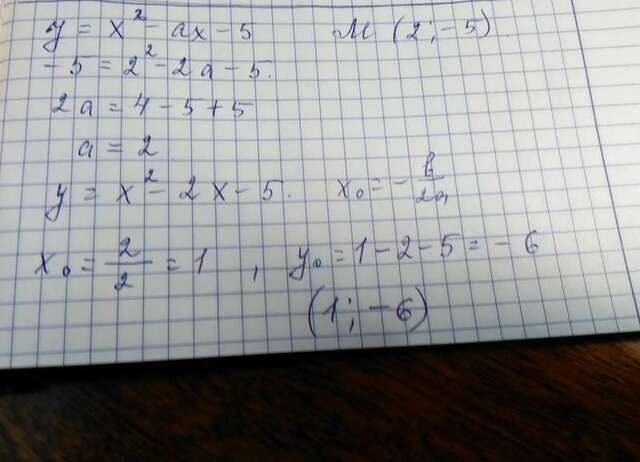 y = x² - ax - 5   M (2; -5).
-5 = 2² - 2a - 5.
2a = 4 - 5 + 5
a = 2
y = x² - 2x - 5.   x₀ = - b/2a
x₀ = 2/2 = 1 , y₀ = 1 - 2 - 5 = - 6
(1; -6)